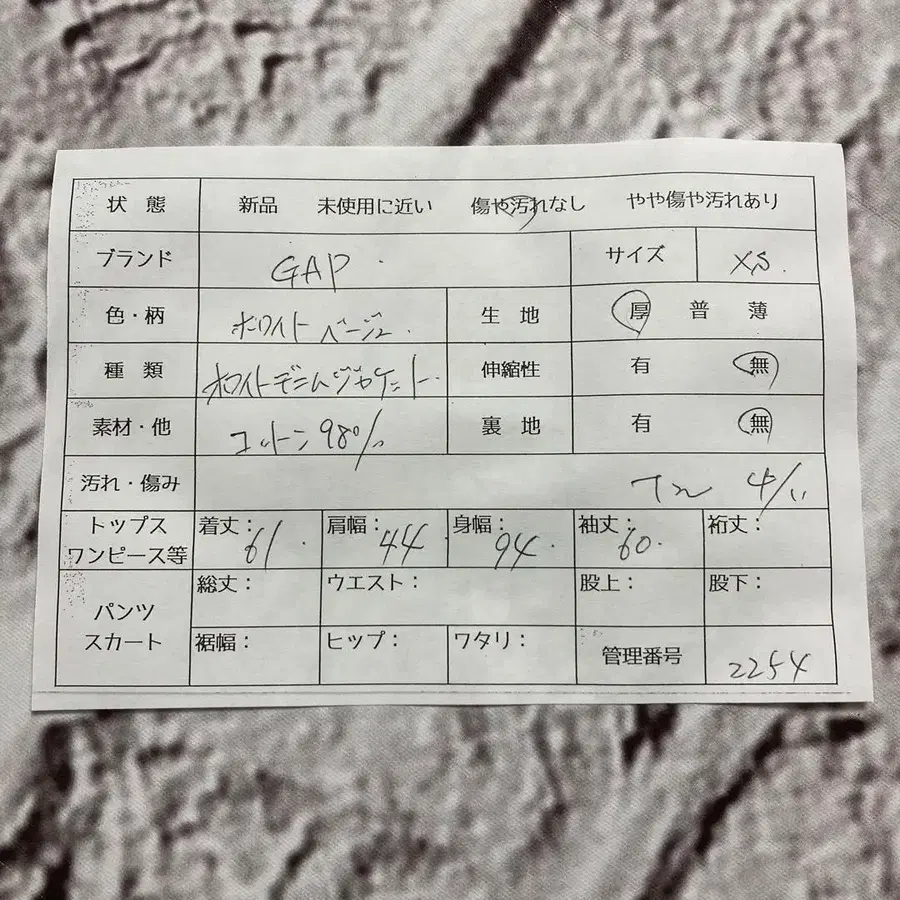 状態 新品 未使用に近い 傷や汚れなし やや傷や汚れあり
ブランド GAP サイズ XS
色・柄 ホワイト ベージュ 生地 厚 普 薄
種類 ホワイトデニムジャケット 伸縮性 有 無
素材・他 コットン98% 裏地 有 無
汚れ・傷み 4/11
トップス ワンピース等 着丈: 61 肩幅: 44 身幅: 94 袖丈: 60 裄丈:
パンツ スカート 総丈: ウエスト: 股上: 股下:
裾幅: ヒップ: ワタリ: 管理番号 2254